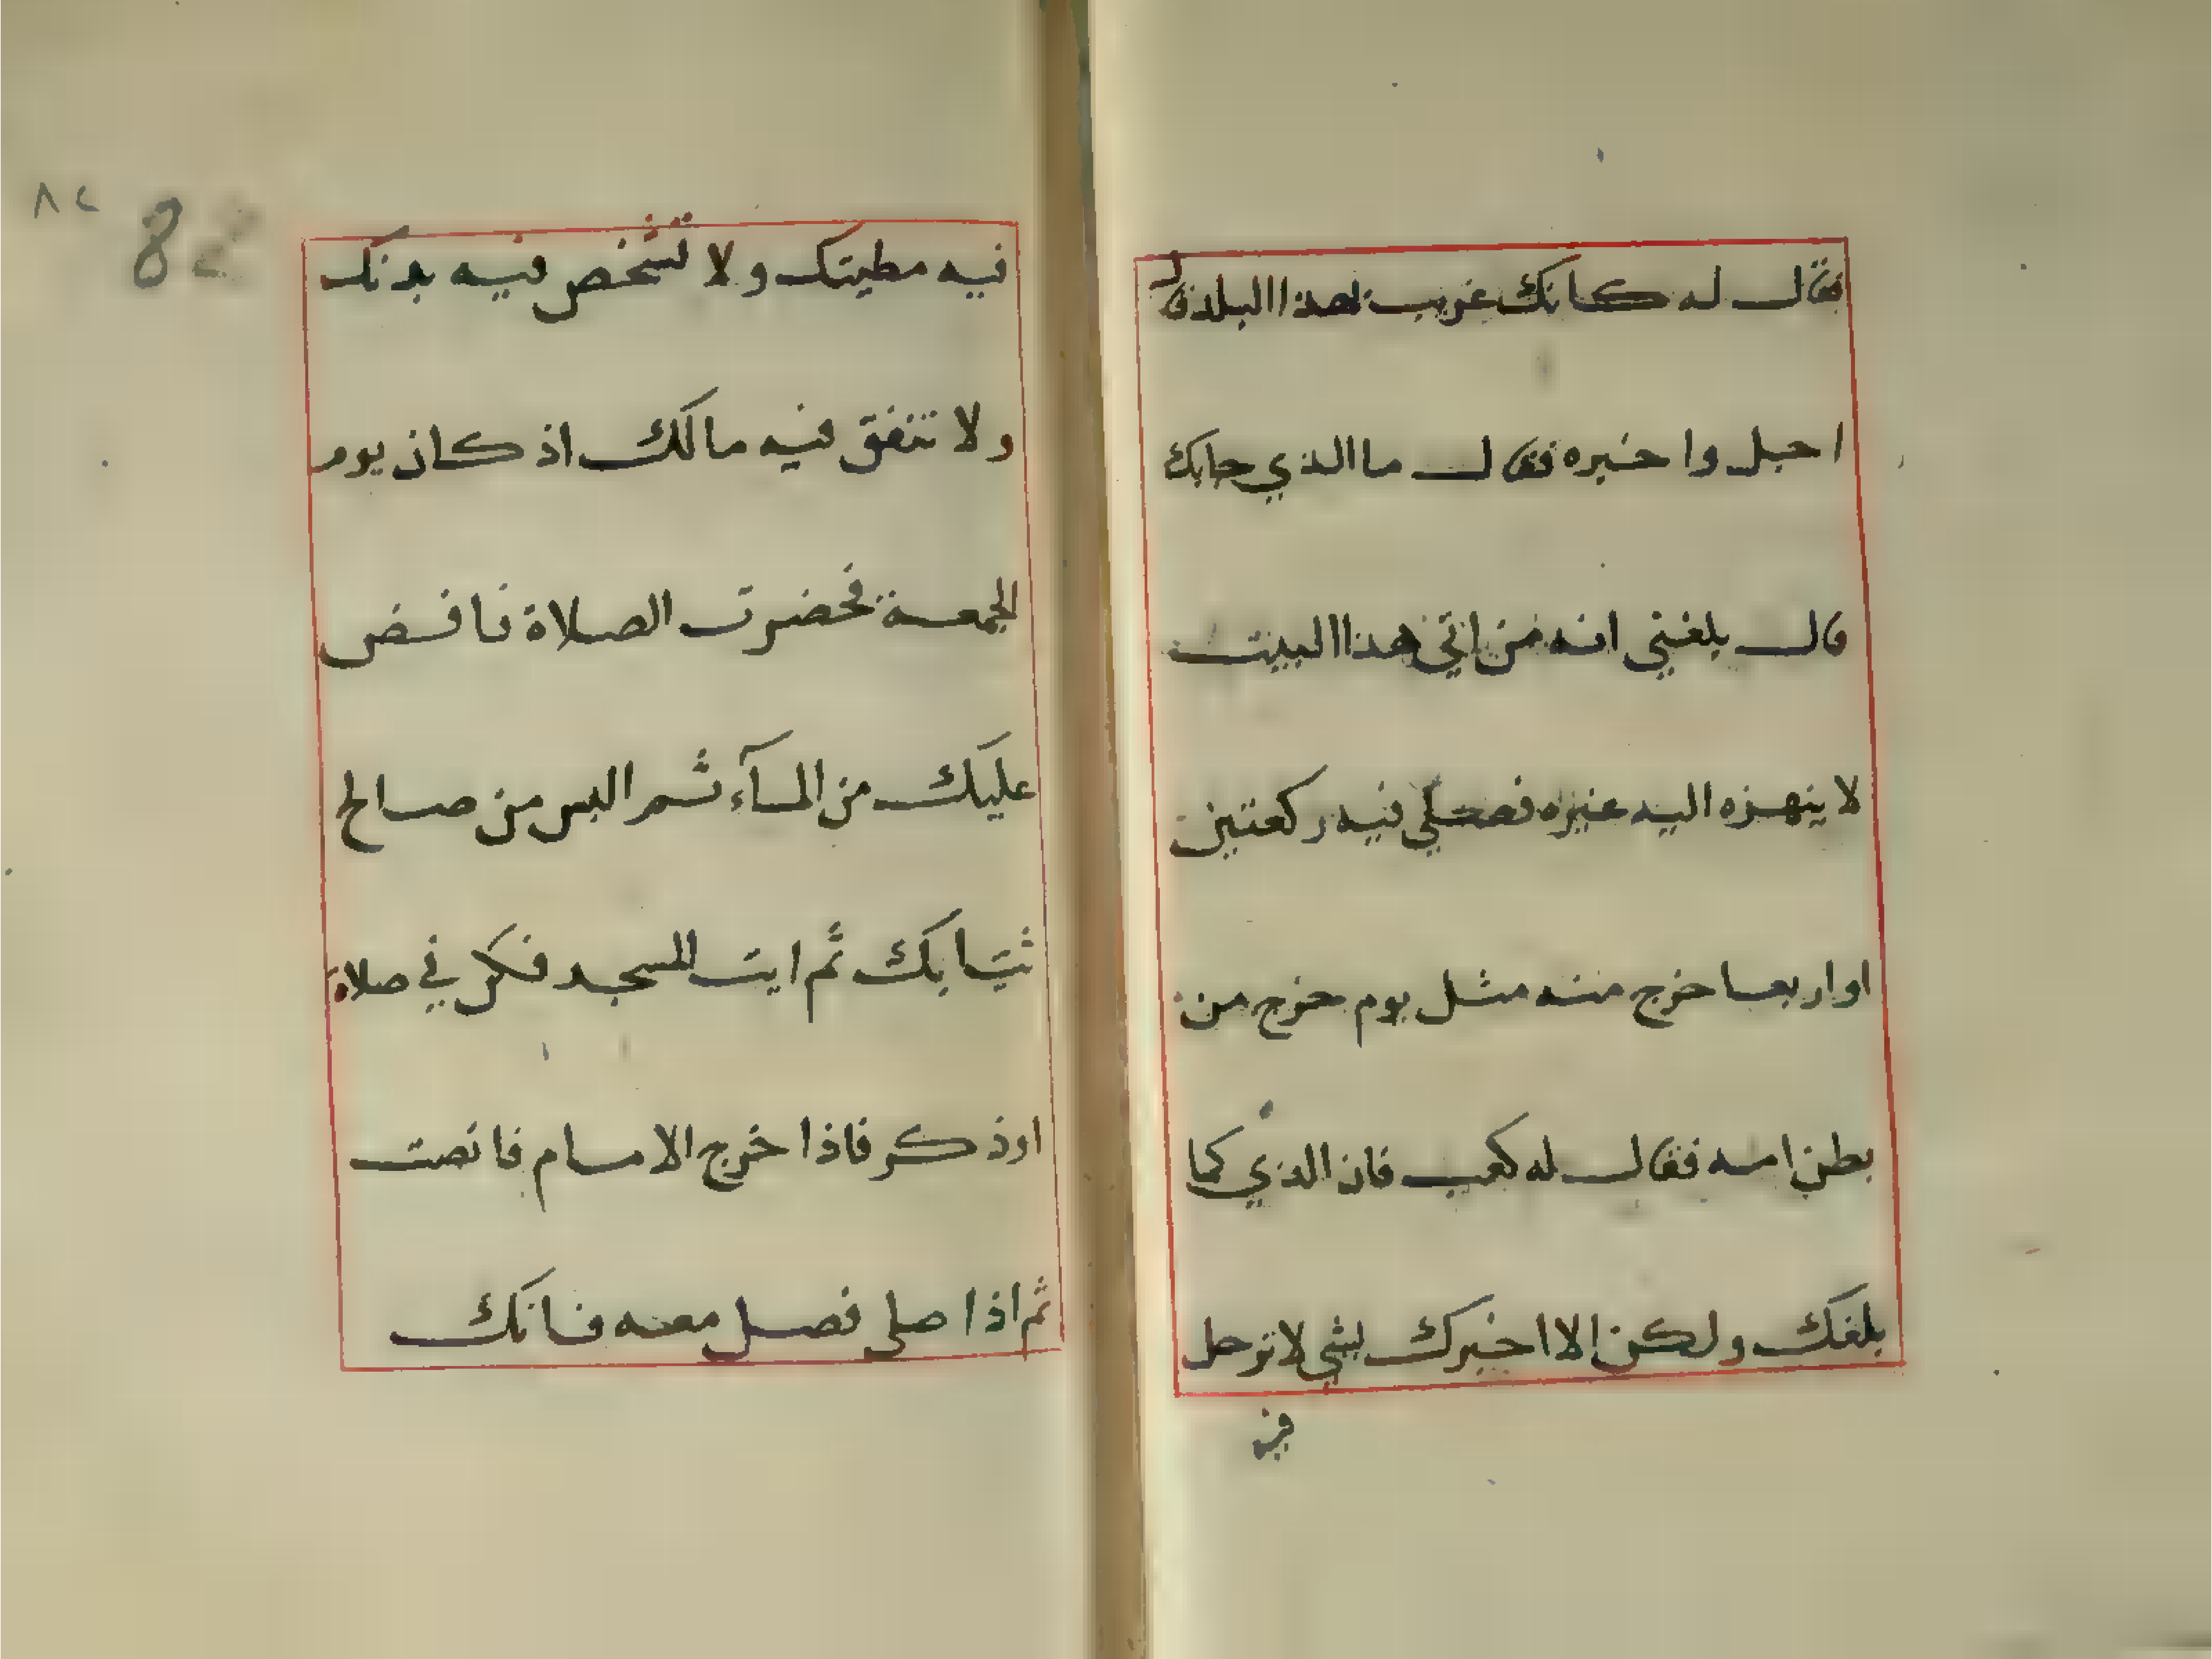 فقال له كانك غريب بهذا البلد قال
اجل واخبره فقال ما الذي جابك
قال بلغني انه من اتى هذا البيت
لا ينهزه اليه غيره فصلي فيه ركعتين
او اربعا خرج منه مثل يوم خرج من
بطن امه فقال له كعب فان الذي كما
بلغك ولكن الا اخبرك بشي لا ترحل
في
فيه مطيتك ولا تشخص فيه بدنك
ولا تنفق فيه مالك اذ كان يوم
الجمعة فحضرت الصلاة فافض
عليك من المآء ثم البس من صالح
ثيابك ثم ايت المسجد فكن في صلاة
او ذكر فاذا خرج الامام فانصت
ثم اذا صلى فصل معه فانك
٨٢
82